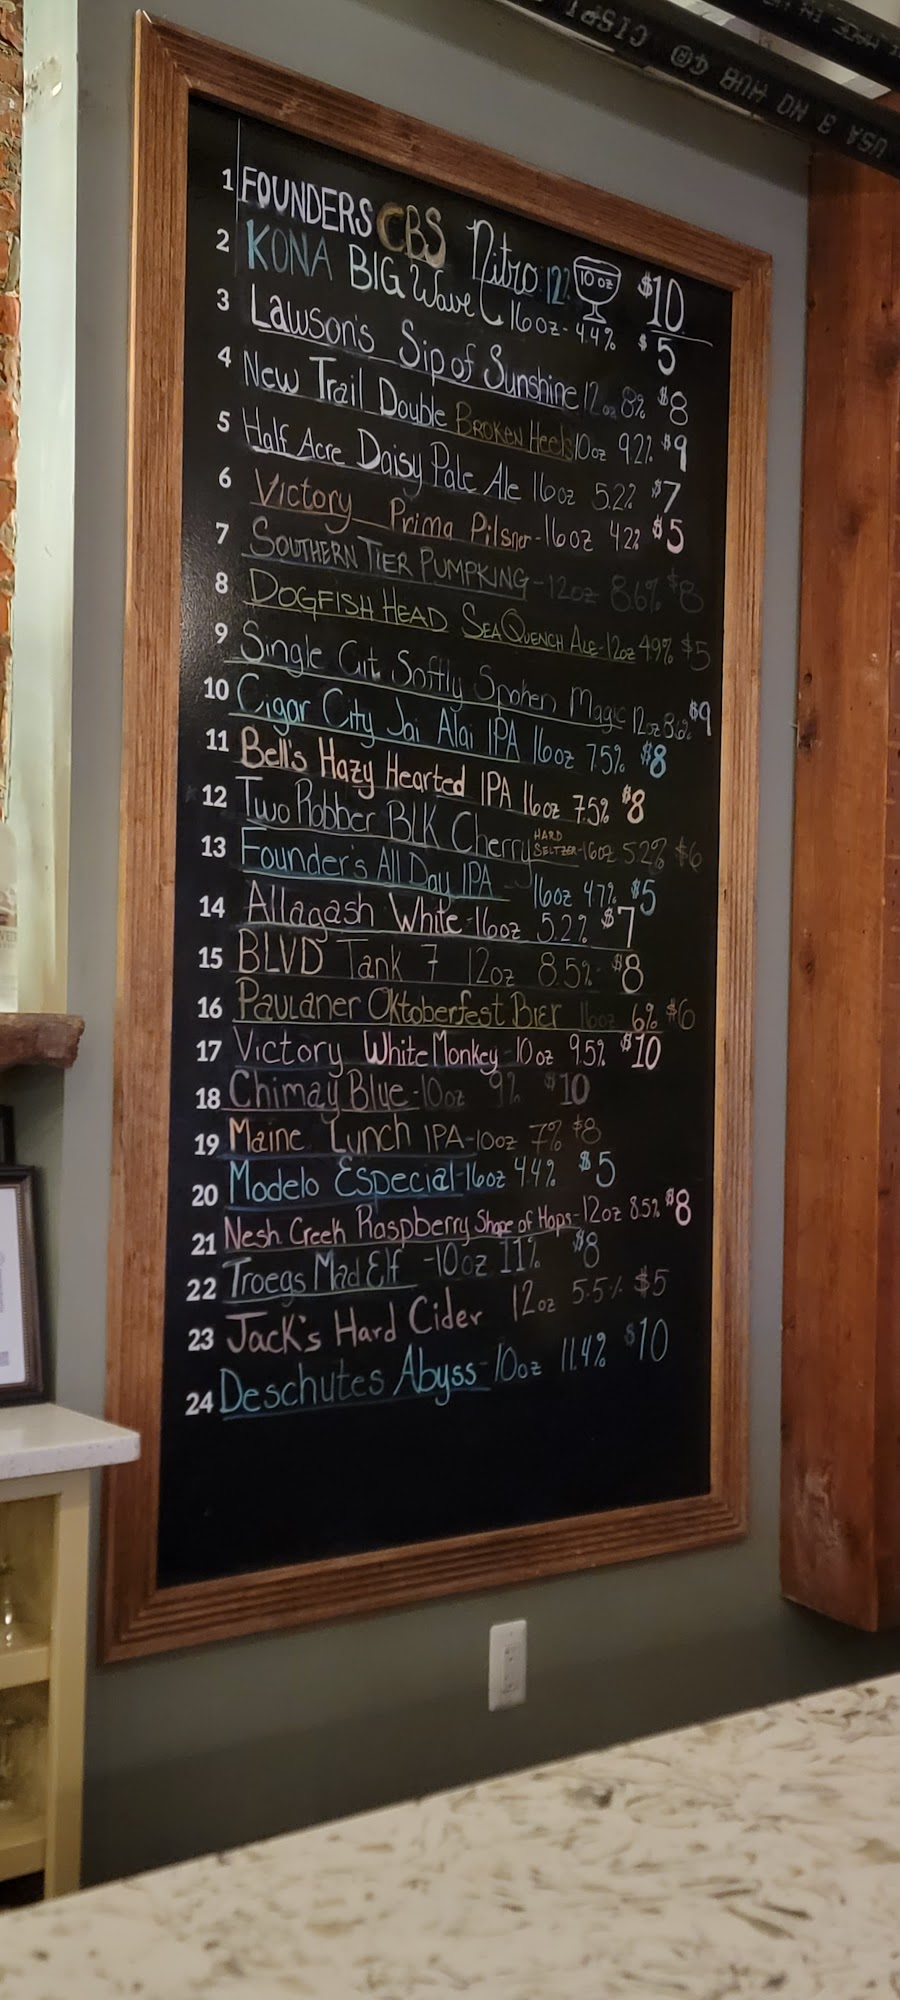 USA 3 NO HUB 4@ CISPI
1 FOUNDERS CBS Nitro 12% 10 oz $10
2 KONA BIG Wave 16oz- 4.4% $5
3 Lawson's Sip of Sunshine 12oz 8% $8
4 New Trail Double BROKEN Heels 10oz 9.2% $9
5 Half Acre Daisy Pale Ale 16oz 5.2% $7
6 Victory Prima Pilsner-16oz 4.2% $5
7 SOUTHERN TIER PUMPKING-12oz 8.6% $8
8 DOGFISH HEAD SEAQUENCH ALE-12oz 4.9% $5
9 Single Cut Softly Spoken Magic 12oz 8.6% $9
10 Cigar City Jai Alai IPA 16oz 7.5% $8
11 Bell's Hazy Hearted IPA 16oz 7.5% $8
12 Two Robber BLK Cherry HARD SELTZER-16oz 5.2% $6
13 Founder's All Day IPA 16oz 4.7% $5
14 Allagash White-16oz 5.2% $7
15 BLVD Tank 7 12oz 8.5% $8
16 Paulaner Oktoberfest Bier 16oz 6% $6
17 Victory White Monkey-10oz 9.5% $10
18 Chimay Blue-10oz 9% $10
19 Maine Lunch IPA-10oz 7% $8
20 Modelo Especial-16oz 4.4% $5
21 Nesh Creek Raspberry Shape of Hops-12oz 8.5% $8
22 Troegs Mad Elf -10oz 11% $8
23 Jack's Hard Cider 12oz 5.5% $5
24 Deschutes Abyss-10oz 11.4% $10